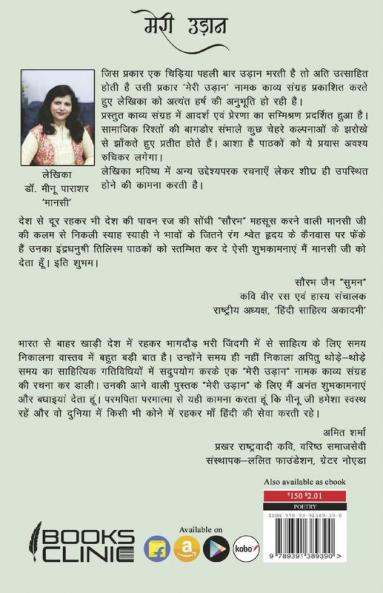 मेरी उड़ान
जिस प्रकार एक चिड़िया पहली बार उड़ान भरती है तो अति उत्साहित
होती है उसी प्रकार 'मेरी उड़ान' नामक काव्य संग्रह प्रकाशित करते
हुए लेखिका को अत्यंत हर्ष की अनुभूति हो रही है।
प्रस्तुत काव्य संग्रह में आदर्श एवं प्रेरणा का सम्मिश्रण प्रदर्शित हुआ है।
सामाजिक रिश्तों की बागडोर संभाले कुछ चेहरे कल्पनाओं के झरोखे
से झाँकते हुए प्रतीत होते हैं। आशा है पाठकों को ये प्रयास अवश्य
रुचिकर लगेगा।
लेखिका भविष्य में अन्य उद्देश्यपरक रचनाएँ लेकर शीघ्र ही उपस्थित
होने की कामना करती है।
लेखिका
डॉ. मीनू पाराशर
'मानसी'
देश से दूर रहकर भी देश की पावन रज की सोंधी "सौरभ" महसूस करने वाली मानसी जी
की कलम से निकली स्याह स्याही ने भावों के जितने रंग श्वेत हृदय के कैनवास पर फेंके
हैं उनका इंद्रधनुषी तिलिस्म पाठकों को स्तम्भित कर दे ऐसी शुभकामनाएँ मैं मानसी जी को
देता हूँ। इति शुभम।
सौरभ जैन "सुमन"
कवि वीर रस एवं हास्य संचालक
राष्ट्रीय अध्यक्ष, 'हिंदी साहित्य अकादमी'
भारत से बाहर खाड़ी देश में रहकर भागदौड़ भरी जिंदगी में से साहित्य के लिए समय
निकालना वास्तव में बहुत बड़ी बात है। उन्होंने समय ही नहीं निकाला अपितु थोड़े-थोड़े
समय का साहित्यिक गतिविधियों में सदुपयोग करके एक "मेरी उड़ान" नामक काव्य संग्रह
की रचना कर डाली। उनकी आने वाली पुस्तक "मेरी उड़ान" के लिए मैं अनंत शुभकामनाएं
और बधाइयां देता हूं। परमपिता परमात्मा से यही कामना करता हूं कि मीनू जी हमेशा स्वस्थ
रहें और वो दुनिया में किसी भी कोने में रहकर माँ हिंदी की सेवा करती रहे।
अमित शर्मा
प्रखर राष्ट्रवादी कवि, वरिष्ठ समाजसेवी
संस्थापक-ललित फाउंडेशन, ग्रेटर नोएडा
Also available as ebook
₹150 $2.01
POETRY
ISBN 978-93-91389-39-0
9 789391 389390 >
BOOKS
CLINIC
Available on
kobo